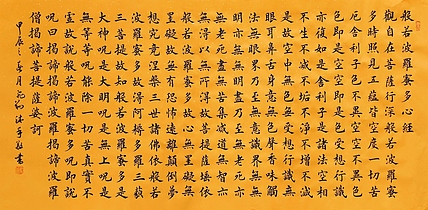 般若波羅蜜多心經
觀自在菩薩行深般若波羅蜜
多時照見五蘊皆空度一切苦
厄舍利子色不異空空不異色
色即是空空即是色受想行識
亦復如是舍利子是諸法空相
不生不滅不垢不淨不增不減
是故空中無色無受想行識無
眼耳鼻舌身意無色聲香味觸
法無眼界乃至無意識界無無
明亦無無明盡乃至無老死亦
無老死盡無苦集滅道無智亦
無得以無所得故菩提薩埵依
般若波羅蜜多故心無罣礙無
罣礙故無有恐怖遠離顛倒夢
想究竟涅槃三世諸佛依般若
波羅蜜多故得阿耨多羅三藐
三菩提故知般若波羅蜜多是
大神咒是大明咒是無上咒是
無等等咒能除一切苦真實不
虛故說般若波羅蜜多咒即說
咒曰揭諦揭諦波羅揭諦波羅
僧揭諦菩提薩婆訶
甲辰之春月沐手敬書